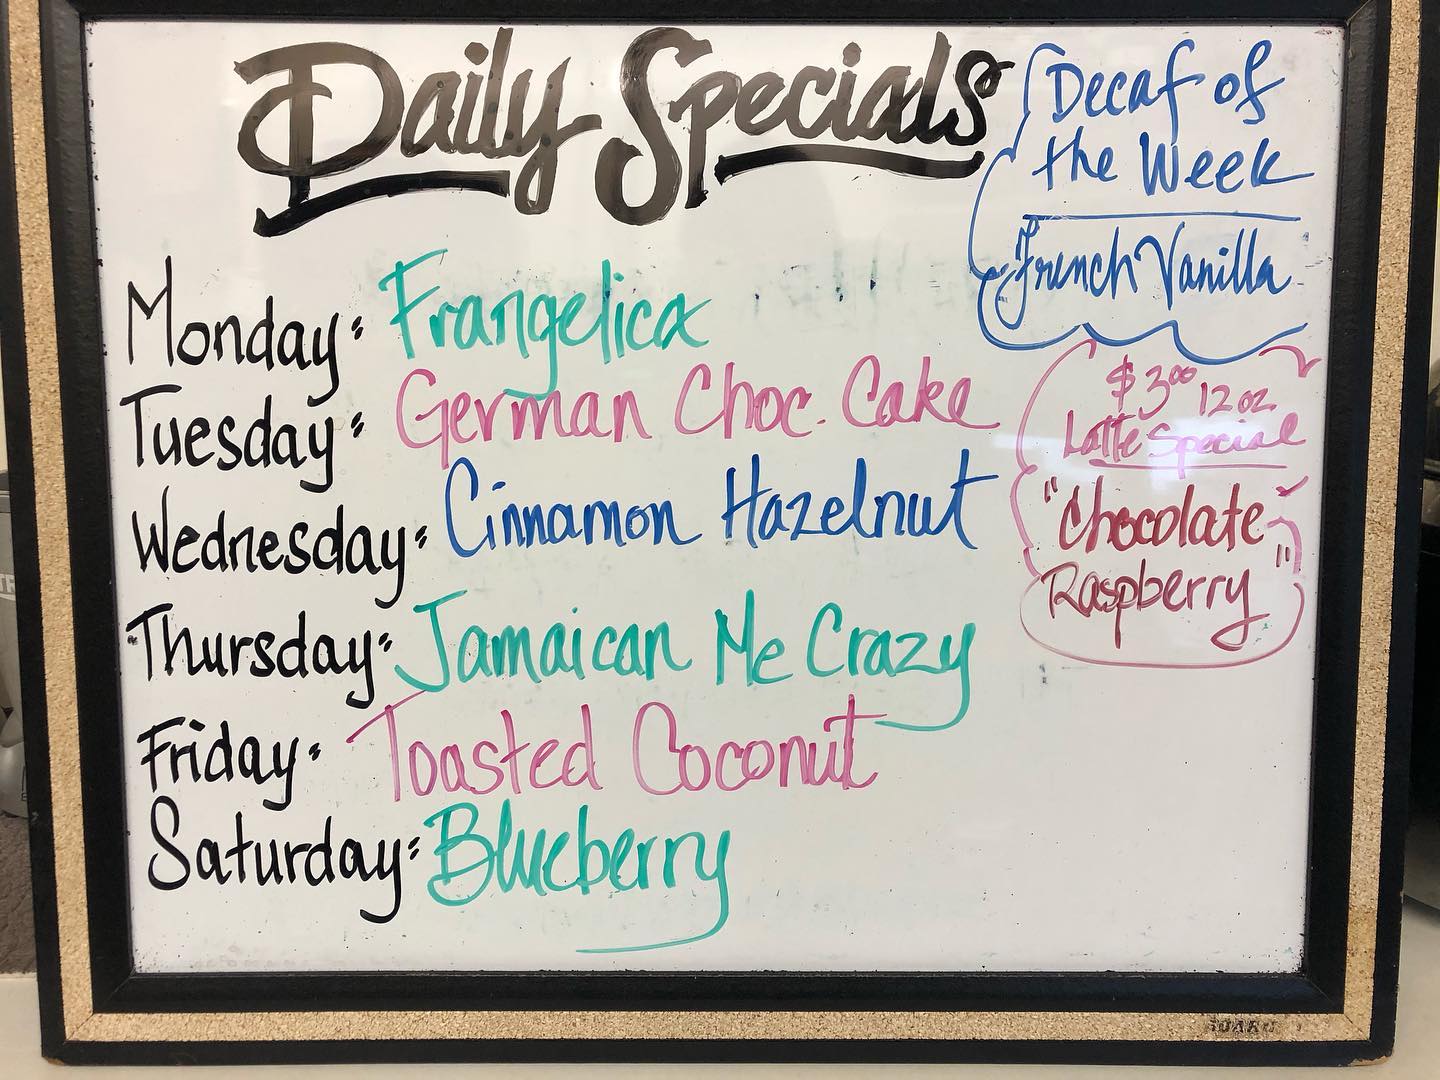 Daily Specials
Monday: Frangelica
Tuesday: German Choc. Cake
Wednesday: Cinnamon Hazelnut
Thursday: Jamaican Me Crazy
Friday: Toasted Coconut
Saturday: Blueberry
Decaf of
the Week
French Vanilla
$3.00 12 oz
Latte Special
"Chocolate
Raspberry"